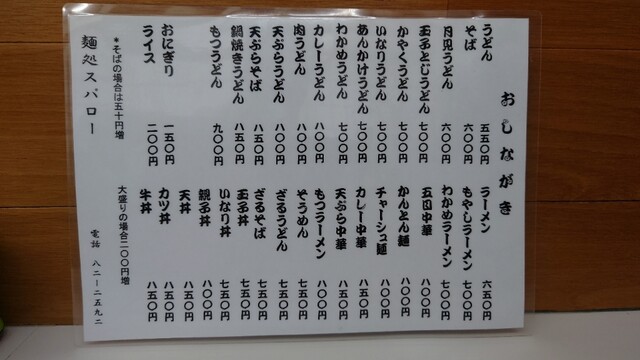 おしながき
うどん 五五〇円
そば 六〇〇円
月見うどん 六〇〇円
玉子とじうどん 七〇〇円
かやくうどん 七〇〇円
いなりうどん 七〇〇円
あんかけうどん 七〇〇円
わかめうどん 七〇〇円
カレーうどん 八〇〇円
肉うどん 八〇〇円
天ぷらうどん 八〇〇円
天ぷらそば 八五〇円
鍋焼きうどん 八五〇円
もつうどん 九〇〇円
おにぎり 一五〇円
ライス 二〇〇円
*そばの場合は五十円増
ラーメン 六五〇円
もやしラーメン 七〇〇円
わかめラーメン 七〇〇円
五目中華 八〇〇円
かんとん麺 八〇〇円
チャーシュ麺 八〇〇円
カレー中華 八五〇円
天ぷら中華 八五〇円
もつラーメン 八〇〇円
そうめん 七五〇円
ざるうどん 七五〇円
ざるそば 七五〇円
玉子丼 七五〇円
いなり丼 七五〇円
親子丼 八〇〇円
天丼 八五〇円
カツ丼 八五〇円
牛丼 八五〇円
大盛りの場合二〇〇円増
麺処スパロー
電話 八二ー二五九二